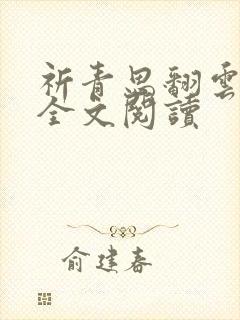 祈青思翻雲
全文閱讀
俞建春